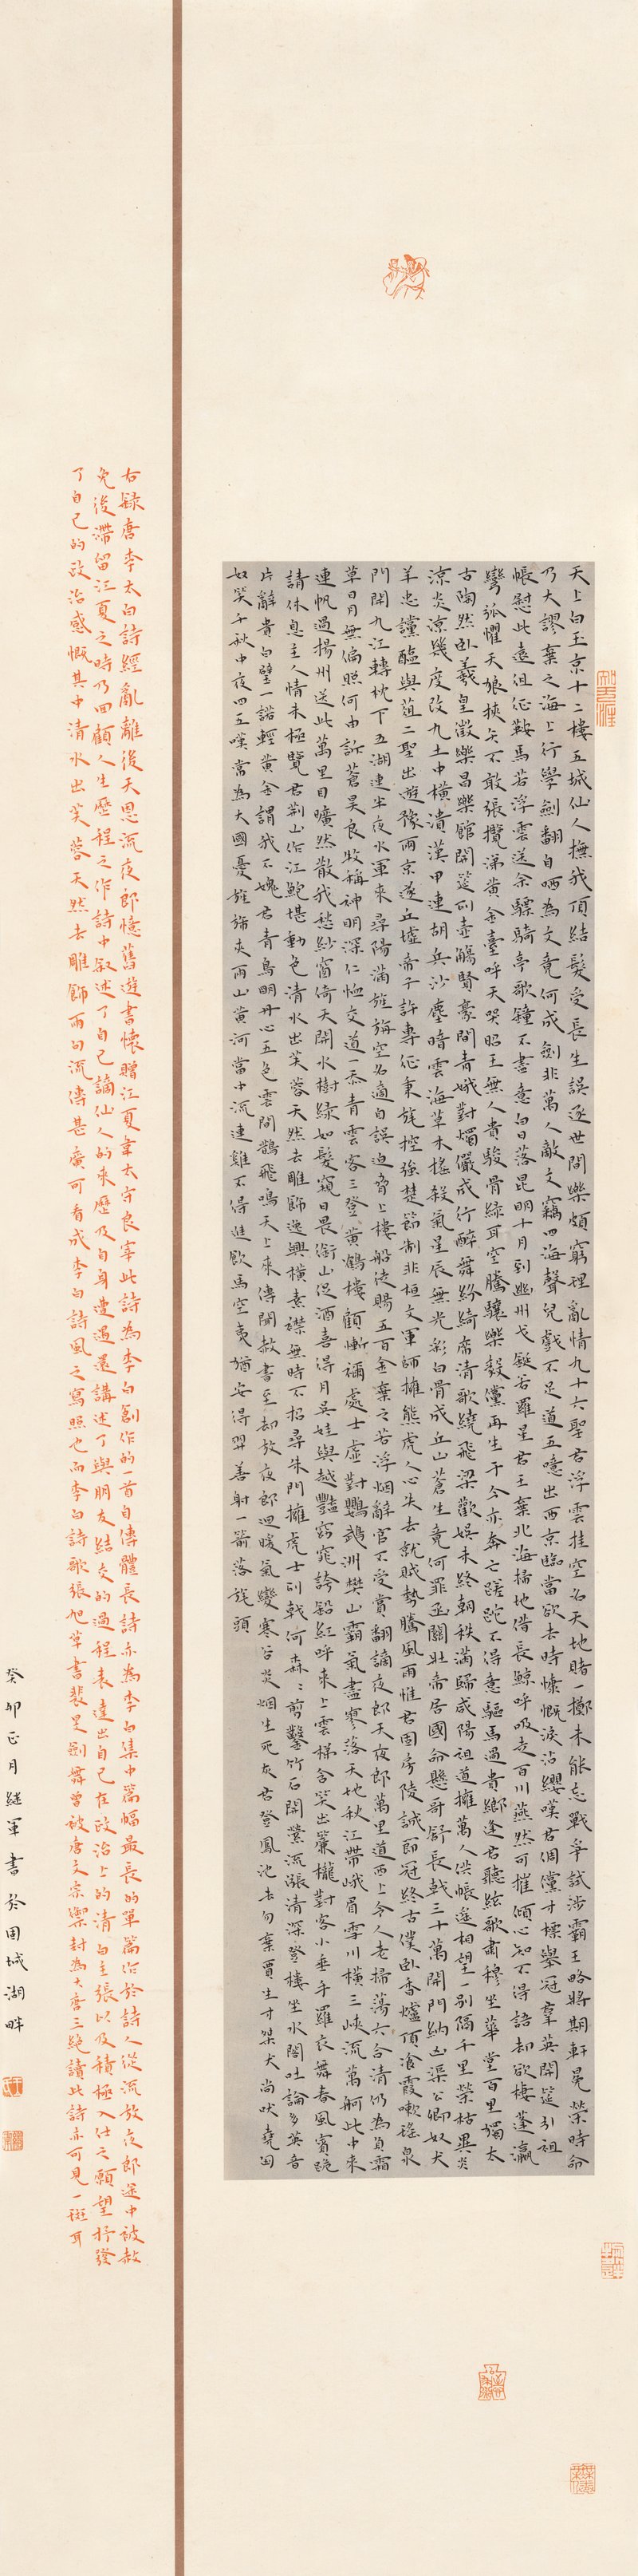 天上白玉京十二樓五城仙人撫我頂結髮受長生誤逐世間樂頗窮理亂情九十六聖君浮雲挂空名天地賭一擲未能忘戰爭試涉霸王略將期軒冕榮時命
乃大謬棄之海上行學劍翻自哂為文竟何成劍非萬人敵文竊四海聲兒戲不足道五噫出西京臨當欲去時慷慨淚沾纓嘆君倜儻才標舉冠羣英開筵引祖
帳慰此遠徂征鞍馬若浮雲送余驃騎亭歌鐘不盡意白日落昆明十月到幽州戈鋋若羅星君王棄北海掃地借長鯨呼吸走百川燕然可摧傾心知不得語却欲棲蓬瀛
彎弧懼天狼挾矢不敢張攬涕黃金臺呼天哭昭王無人貴駿骨綠耳空騰驤樂毅儻再生于今亦奔亡蹉跎不得意驅馬過貴鄉逢君聽絃歌肅穆坐華堂百里獨太
古陶然臥羲皇徵樂昌樂館開筵列壺觴賢豪間青娥對燭儼成行醉舞紛綺席清歌繞飛梁歡娛未終朝秩滿歸咸陽祖道擁萬人供帳遙相望一別隔千里榮枯異炎
涼炎涼幾度改九土中橫潰漢甲連胡兵沙塵暗雲海草木搖殺氣星辰無光彩白骨成丘山蒼生竟何罪函關壯帝居國命懸哥舒長戟三十萬開門納凶渠公卿奴犬
羊忠讜醢與菹二聖出遊豫兩京遂丘墟帝子許專征秉旄控強楚節制非桓文軍師擁熊虎人心失去就賊勢騰風雨惟君固房陵誠節冠終古僕臥香爐頂飡霞嗽瑤泉
門開九江轉枕下五湖連半夜水軍來尋陽滿旌旃空名適自誤迫脅上樓船徒賜五百金棄之若浮烟辭官不受賞翻謫夜郎天夜郎萬里道西上令人老掃蕩六合清仍為負霜
草日月無偏照何由訴蒼昊良牧稱神明深仁恤交道一忝青雲客三登黃鶴樓顧慚禰處士虛對鸚鵡洲樊山霸氣盡寥落天地秋江帶峨眉雪川橫三峽流萬舸此中來
連帆過揚州送此萬里目曠然散我愁紗窗倚天開水樹綠如髮窺日畏銜山促酒喜得月吳娃與越豔窈窕誇鉛紅呼來上雲梯含笑出簾櫳對客小垂手羅衣舞春風賓跪
請休息主人情未極覽君荊山作江鮑堪動色清水出芙蓉天然去雕飾逸興橫素襟無時不招尋朱門擁虎士列戟何森々剪鑿竹石開縈流漲清深登樓坐水閣吐論多英音
片辭貴白璧一諾輕黃金謂我不愧君青鳥明丹心五色雲間鵲飛鳴天上來傳聞赦書至却放夜郎迴暖氣變寒谷炎烟生死灰君登鳳池去勿棄賈生才桀犬尚吠堯匈
奴笑千秋中夜四五嘆常為大國憂旌旆夾兩山黃河當中流連雞不得進飲馬空夷猶安得羿善射一箭落旄頭
右錄唐李太白詩經亂離後天恩流夜郎憶舊遊書懷贈江夏韋太守良宰此詩為李白創作的一首自傳體長詩亦為李白集中篇幅最長的單篇作於詩人從流放夜郎途中被赦
免後滯留江夏之時乃回顧人生歷程之作詩中叙述了自己謫仙人的來歷及自身遭遇還講述了與朋友結交的過程表達出自己在政治上的清白主張以及積極入仕之願望抒發
了自己的政治感慨其中清水出芙蓉天然去雕飾兩句流傳甚廣可看成李白詩風之寫照也而李白詩歌張旭草書裴旻劍舞曾被唐文宗禦封為大唐三絕讀此詩亦可見一斑耳
癸卯正月繼軍書於固城湖畔